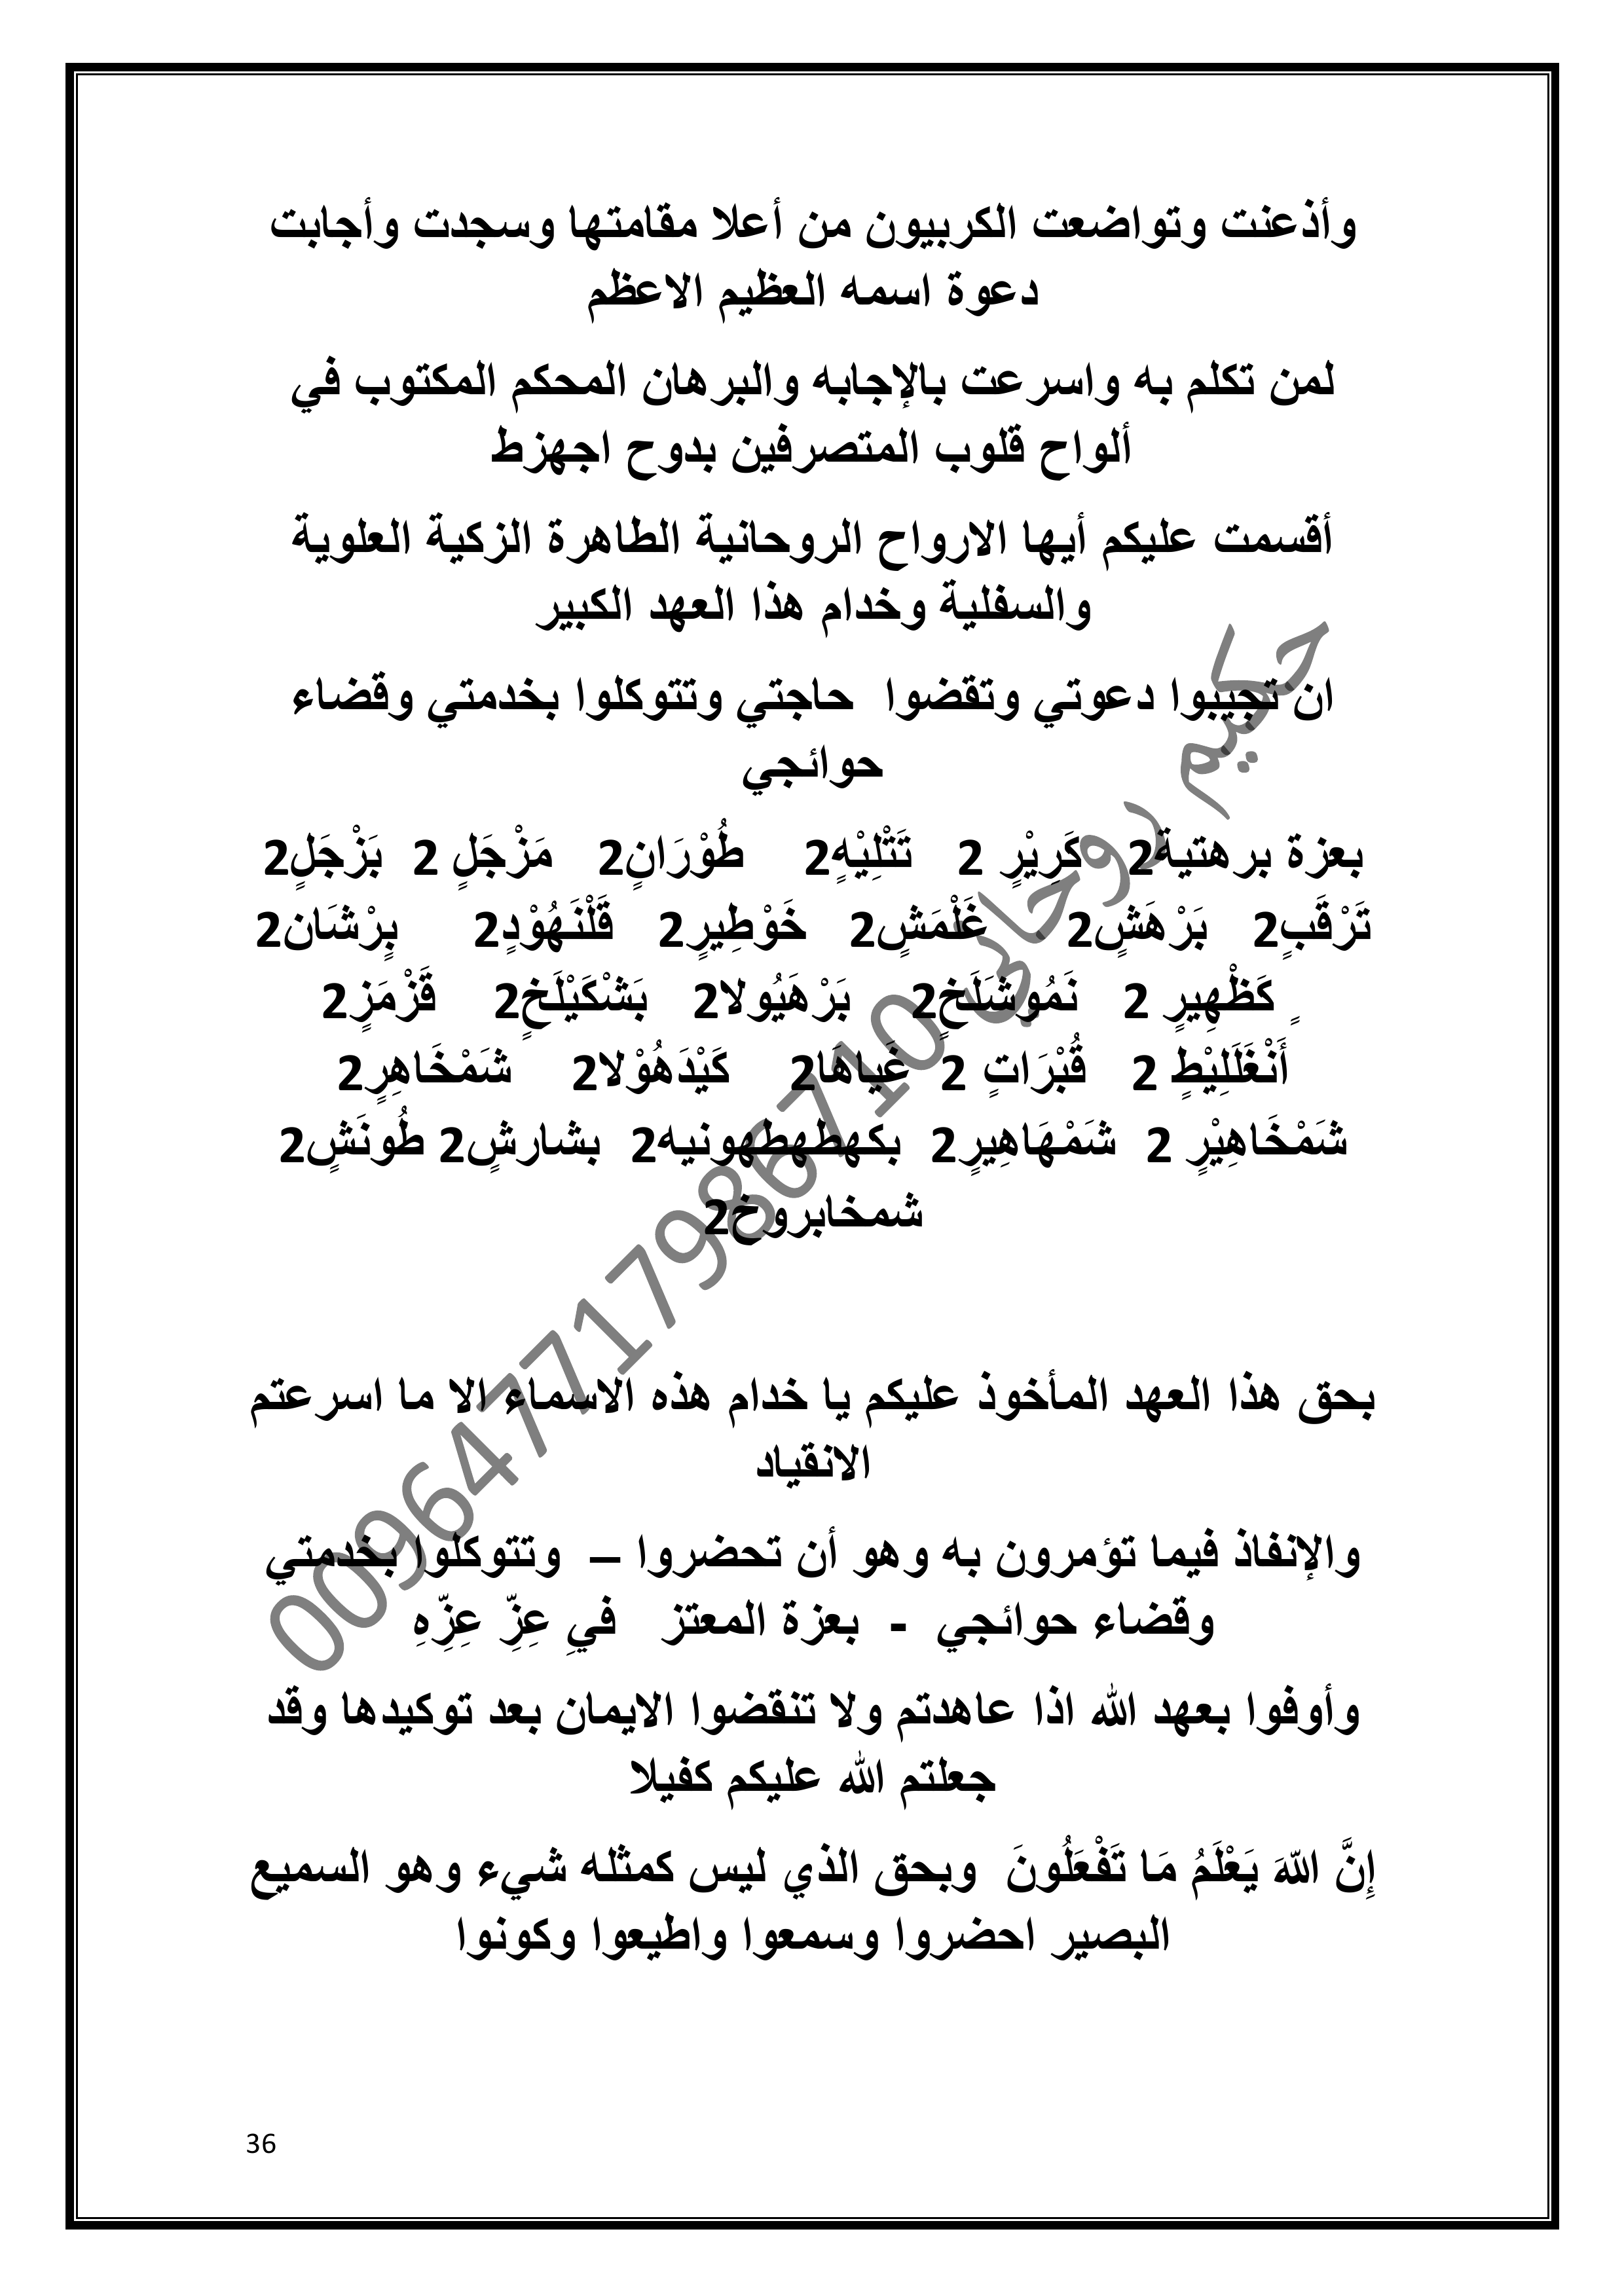 وأذعنت وتواضعت الكربيون من أعلا مقامتها وسجدت وأجابت
دعوة اسمه العظيم الاعظم
لمن تكلم به واسرعت بالإجابه والبرهان المحكم المكتوب في
ألواح قلوب المتصرفين بدوح اجهزط
أقسمت عليكم أيها الارواح الروحانية الطاهرة الزكية العلوية
والسفلية وخدام هذا العهد الكبير
ان تجيبوا دعوتي وتقضوا حاجتي وتتوكلوا بخدمتي وقضاء
حوائجي
بعزة برهتية2 كَرِيْرٍ 2 تَتْلِيْهٍ2 طُوْرَانٍ2 مَزْجَلٍ 2 بَزْجَلٍ2
تَرْقَبٍ2 بَرْهَشٍ2 غَلْمَشٍ2 خَوْطِيرٍ2 قَلْنَهُوْدٍ2 بِرْشَان2
ٍ كَظْهِيرٍ 2 نَمُوشَلَخٍ2 بَرْهَيُولا2 بَشْكَيْلَخٍ2 قَزْمَزٍ2
أَنْغَلَلِيْطٍ 2 قُبْرَاتٍ 2 غَياهَا2 كَيْدَهُوْلا2 شَمْخَاهِرٍ2
شَمْخَاهِيْرٍ 2 شَمْهَاهِيرٍ2 بكهطهطهونيه2 بشارشٍ2 طُونَشٍ2
شمخابروخ2
بحق هذا العهد المأخوذ عليكم يا خدام هذه الاسماء الا ما اسرعتم
الانقياد
والإنفاذ فيما تؤمرون به وهو أن تحضروا – وتتوكلوا بخدمتي
وقضاء حوائجي - بعزة المعتز فيِ عِزِّ عِزِّهِ
وأوفوا بعهد الله اذا عاهدتم ولا تنقضوا الايمان بعد توكيدها وقد
جعلتم الله عليكم كفيلا
إِنَّ اللّهَ يَعْلَمُ مَا تَفْعَلُونَ وبحق الذي ليس كمثله شيء وهو السميع
البصير احضروا وسمعوا واطيعوا وكونوا
حكيم روحاني 009647717986710
36